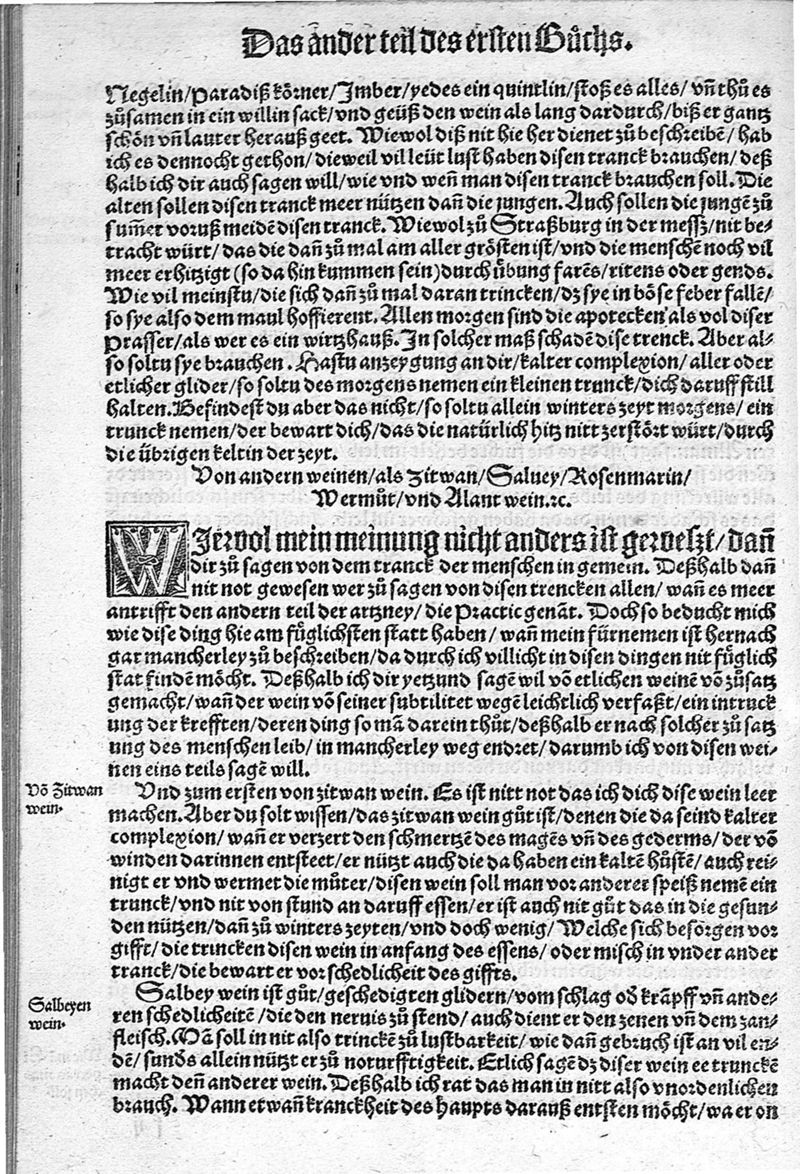 Das ander teil des ersten Bůchs.
Negelin/Paradiß körner/Imber/yedes ein quintlin/stoß es alles/ vñ thů es
zůsamen in ein willin sack/vnd geüß den wein als lang dardurch/biß er gantz
schön vñ lauter herauß geet. Wiewol diß nit hie her dienet zů beschreibē/ hab
ich es dennocht gethon/ dieweil vil leüt lust haben disen tranck brauchen/ deß
halb ich dir auch sagen will/wie vnd weñ man disen tranck brauchen soll. Die
alten sollen disen tranck meer nützen dañ die jungen. Auch sollen die jungē zů
sum̄er voruß meidē disen tranck. Wiewol zů Straßburg in der messz/nit be⸗
tracht würt/ das die dañ zů mal am aller grösten ist/vnd die menschē noch vil
meer erhitzigt (so da hin kummen sein)durch übung farēs/ritens oder gends.
Wie vil meinstu/die sich dañ zů mal daran trincken/dz sye in böse feber fallē/
so sye also dem maul hoffierent. Allen morgen sind die apotecken als vol diser
Prasser/als wer es ein wirtzhauß. In solcher maß schadē dise trenck. Aber al⸗
so soltu sye brauchen. Hastu anzeygung an dir/kalter complexion/ aller oder
etlicher glider/so soltu des morgens nemen ein kleinen trunck/dich daruff still
halten. Befindest du aber das nicht/so soltu allein winters zeyt morgens/ ein
trunck nemen/der bewart dich/das die natürlich hitz nitt zerstört würt/durch
die übrigen keltin der zeyt.
Von andern weinen/als Zitwan/Salvey/Rosenmarin/
Wermůt/vnd Alant wein.ꝛc.
WIewol mein meinung nicht anders ist geweszt/dañ
dir zů sagen von dem tranck der menschen in gemein. Deßhalb dañ
nit not gewesen wer zů sagen von disen trencken allen/ wañ es meer
antrifft den andern teil der artzney/ die Practic genāt. Doch so beducht mich
wie dise ding hie am füglichsten statt haben/ wañ mein fürnemen ist hernach
gar mancherley zů beschreiben/da durch ich villicht in disen dingen nit füglich
stat findē möcht. Deßhalb ich dir yetzund sagē wil vō etlichen weinē vō zůsatz
gemacht/wañ der wein vō seiner subtilitet wegē leichtlich verfaßt/ein intruck
ung der krefften/deren ding so mā darein thůt/deßhalb er nach solcher zů satz
ung des menschen leib/ in mancherley weg endret/darumb ich von disen wei⸗
nen eins teils sagē will.
Vō Zitwan
wein.
Vnd zum ersten von zitwan wein. Es ist nitt not das ich dich dise wein leer
machen. Aber du solt wissen/das zitwan wein gůt ist/denen die da seind kalter
complexion/ wañ er verzert den schmertzē des magēs vñ des gederms/der vō
winden darinnen entsteet/er nützt auch die da haben ein kaltē hůstē/ auch rei⸗
nigt er vnd wermet die můter/disen wein soll man vor anderer speiß nemē ein
trunck/vnd nit von stund an daruff essen/er ist auch nit gůt das in die gesun⸗
den nützen/dañ zů winters zeyten/vnd doch wenig/ Welche sich besorgen vor
gifft/ die trincken disen wein in anfang des essens/ oder misch in vnder ander
tranck/die bewart er vor schedlicheit des giffts.
Salbeyen
wein.
Salbey wein ist gůt/geschedigten glidern/vom schlag oď krāpff vñ ande⸗
ren schedlicheitē/die den neruis zů stend/ auch dient er den zenen vñ dem zan⸗
fleisch. Mā soll in nit also trinckē zů lustbarkeit/ wie dañ gebruch ist an vil en⸗
dē/ sunds allein nützt er zů noturfftigkeit. Etlich sagē dz diser wein ee trunckē
macht deñ anderer wein. Deßhalb ich rat das man in nitt also vnordenlichen
brauch. Wann etwañ kranckheit des haupts darauß entsten möcht/wa er on